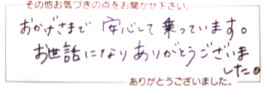 その他お気づきの点をお聞かせ下さい。
おかげさまで 安心して 乗っています。
お世話になりありがとうございま
した。
ありがとうございました。